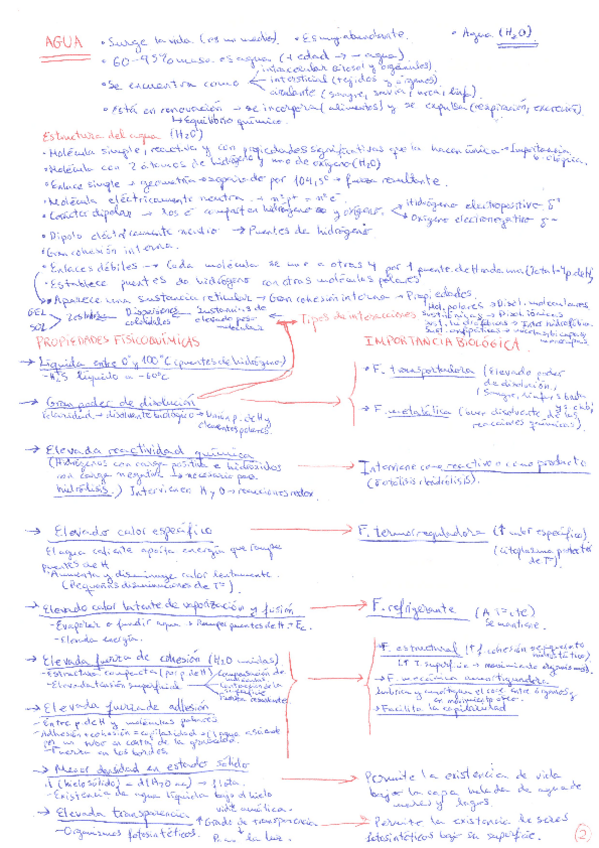 AGUA • Surge la vida (es un medio). • Es muy abundante. • Agua (H₂O).
• 60-95% masa es agua (+ edad → - agua)
• Se encuentra como intracelular (citosol y orgánulos).
intersticial (tejidos y órganos)
circulante (sangre, savia, linf.)
• Está en renovación → se incorpora (alimentos) y se expulsa (respiración, excreción).
↳ Equilibrio químico.
Estructura del agua (H₂O)
• Molécula simple, reactiva y con propiedades significativas que la hacen única → Importancia biológica.
• Molécula con 2 átomos de hidrógeno y uno de oxígeno (H₂O)
• Enlace simple → geometría → separado por 104,5° → fuerza resultante.
• Molécula eléctricamente neutra → nº p⁺ = nº e⁻
• Carácter dipolar → los e⁻ comparten hidrógeno y oxígeno. Hidrógeno electropositivo, δ⁺
Oxígeno electronegativo δ⁻
• Dipolo eléctricamente neutro → Puentes de hidrógeno
• Gran cohesión interna.
• Enlaces débiles → Cada molécula se une a otras 4 por 1 puente de H cada una (Total = 4 p. de H)
• Establece puentes de hidrógeno con otras moléculas polares
• Aparece una sustancia reticular → Gran cohesión interna → Propiedades
GEL
SOL Dispersiones coloidales Sustancias de elevado peso molecular
Tipos de interacciones
PROPIEDADES FISICOQUÍMICAS IMPORTANCIA BIOLÓGICA
→ Líquida entre 0° y 100°C (puentes de hidrógeno)
- H₂S líquido a -60°C
→ Gran poder de disolución → F. transportadora (Elevado poder de disolución,
polaridad → disolvente biológico → Unión p. de H y elementos polares.
→ F. metabólica (buen disolvente de las reacciones químicas).
→ Elevada reactividad química
(Hidrógenos con carga positiva e hidróxidos con carga negativa → necesario para hidrólisis.) Intervienen H y O → reacciones redox.
Interviene como reactivo o como producto
(Fotólisis e hidrólisis).
→ Elevado calor específico → F. termorreguladora (↑ calor específico)
El agua caliente aporta energía que rompe puentes de H
(citoplasma protector de Tª)
- Aumenta y disminuye calor lentamente.
(Pequeñas disminuciones de Tª)
→ Elevado calor latente de vaporización y fusión → F. refrigerante (A Tª cte)
- Evaporar o fundir agua → Rompe puentes de H → Ec. Se mantiene.
- Elevada energía.
→ Elevada fuerza de cohesión (H₂O unidas).
- Estructura compacta (por p. de H)
- Elevada tensión superficial
• F. estructural (↑ f. cohesión
(↑ T. superficial → movimiento organismos).
→ F. mecánica amortiguadora
→ Facilita la capilaridad
→ Elevada fuerza de adhesión
- Entre p. de H y moléculas polares
- Adhesión + cohesión = capilaridad → (agua asciende por un tubo en contra de la gravedad.
- Fuerza en los bordes
→ Menor densidad en estado sólido → Permite la existencia de vida
d (hielo sólido) < d (H₂O liq) → flota. bajo la capa helada de agua de
- Existencia de agua líquida bajo el hielo mares y lagos.
vida acuática.
→ Elevada transparencia ↑ Grado de transparencia → Permite la existencia de seres
- Organismos fotosintéticos. la luz. fotosintéticos bajo su superficie.
2